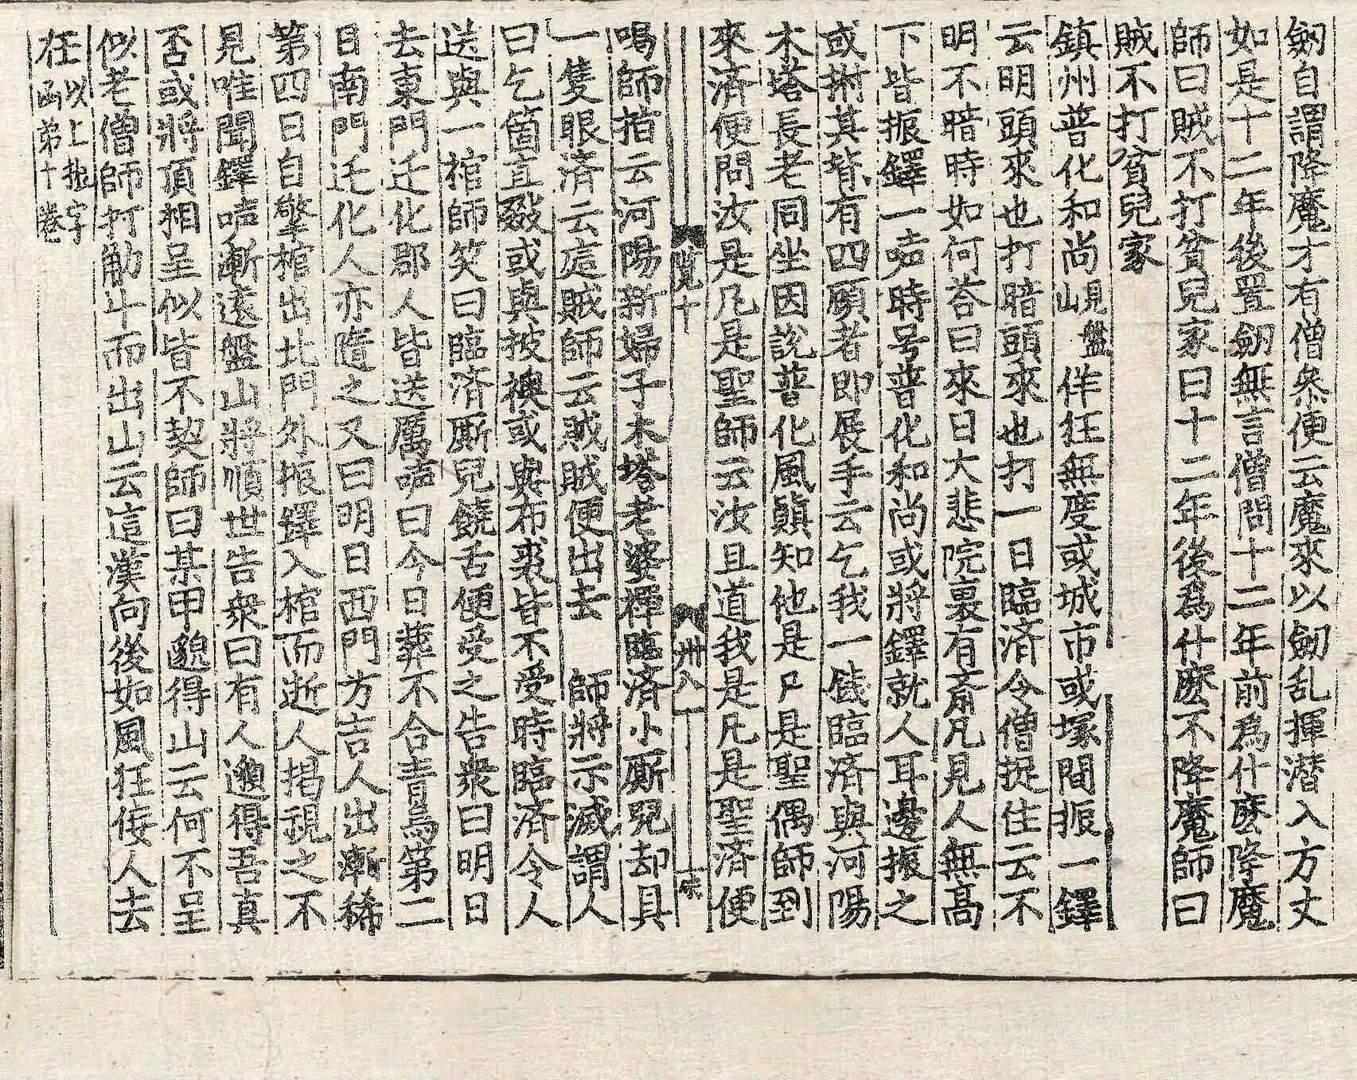 劒自謂降魔才有僧叅便云魔來以劒乱揮潜入方丈
如是十二年後置劒無言僧問十二年前爲什麽降魔
師曰賊不打貧兒家曰十二年後爲什麽不降魔師曰
賊不打貧兒家
鎮州普化和尚見盤山佯狂無度或城市或塚間振一鐸
云明頭來也打暗頭來也打一日臨済令僧捉住云不
明不暗時如何答曰來日大悲院裏有斎凡見人無高
下皆振鐸一声時号普化和尚或將鐸就人耳邊振之
或拊其背有四顧者即展手云乞我一錢臨済與河陽
木塔長老同坐因說普化風顛知他是凡是聖偶師到
來済便問汝是凡是聖師云汝且道我是凡是聖済便
覧十
卅八
喝師指云河陽新婦子木塔老婆禪臨済小厮兒却具
一隻眼済云這賊師云賊賊便出去 師將示滅謂人
曰乞箇直裰或與披襖或與布裘皆不受時臨済令人
送與一棺師笑曰臨済厮兒饒舌便受之告衆曰明日
去東門迁化郡人皆送厲声曰今日葬不合青烏第二
日南門迁化人亦隨之又曰明日西門方吉人出漸稀
第四日自擎棺出北門外振鐸入棺而逝人揭視之不
見唯聞鐸声漸遠盤山將順世告衆曰有人邈得吾真
否或將頂相呈似皆不契師曰某甲邈得山云何不呈
似老僧師打觔斗而出山云這漢向後如風狂倿人去
在以上振字函弟十卷